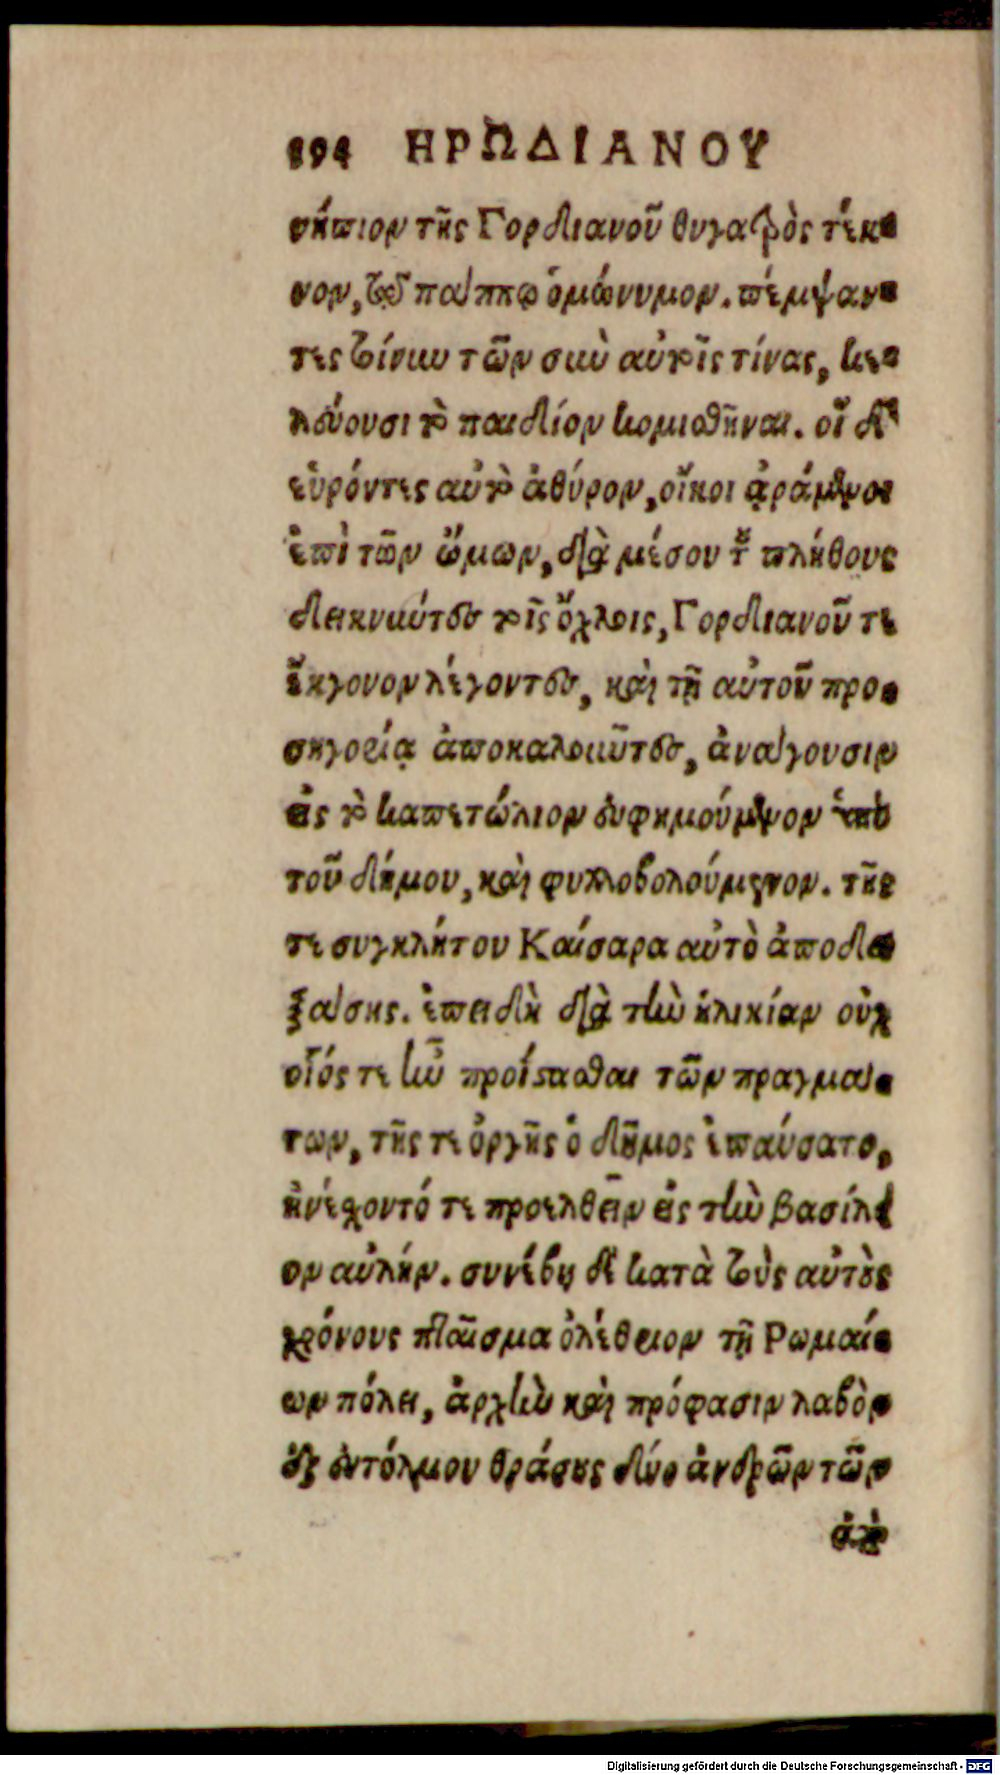 194 ΗΡΩΔΙΑΝΟΥ
νήπιον τῆς Γορδιανοῦ θυγατρὸς τέκ-
νον, τῷ πάππῳ ὁμώνυμον. πέμψαν-
τες τοίνυν τῶν σὺν αὐτοῖς τινας, κε-
λεύουσι τὸ παιδίον κομισθῆναι. οἳ δ'
εὑρόντες αὐτὸ ἀθύρον, οἴκοι ἀράμενοι
ἐπὶ τῶν ὤμων, διὰ μέσου τοῦ πλήθους
δεικνύντες τοῖς ὄχλοις, Γορδιανοῦ τε
ἔκγονον λέγοντες, καὶ τῇ αὐτοῦ προ-
σηγορίᾳ ἀποκαλοῦντες, ἀνάγουσιν
εἰς τὸ καπετώλιον εὐφημούμενον ὑπὸ
τοῦ δήμου, καὶ φυλλοβολούμενον. τῆς
τε συγκλήτου Καίσαρα αὐτὸ ἀποδει-
ξάσης. ἐπειδὴ διὰ τὴν ἡλικίαν οὐχ
οἷός τε ἦν προΐστασθαι τῶν πραγμά-
των, τῆς τε ὀργῆς ὁ δῆμος ἐπαύσατο,
ἠνέσχοντό τε προελθεῖν εἰς τὴν βασίλει
ον αὐλήν. συνέβη δὲ κατὰ τοὺς αὐτοὺς
χρόνους πταῖσμα ὀλέθριον τῇ Ρωμαί-
ων πόλει, ἀρχὴν καὶ πρόφασιν λαβὸν
ἐξ εὐτόλμου θράσους δύο ἀνδρῶν τῶν
ἀπὸ
Digitalisierung gefördert durch die Deutsche Forschungsgemeinschaft - DFG